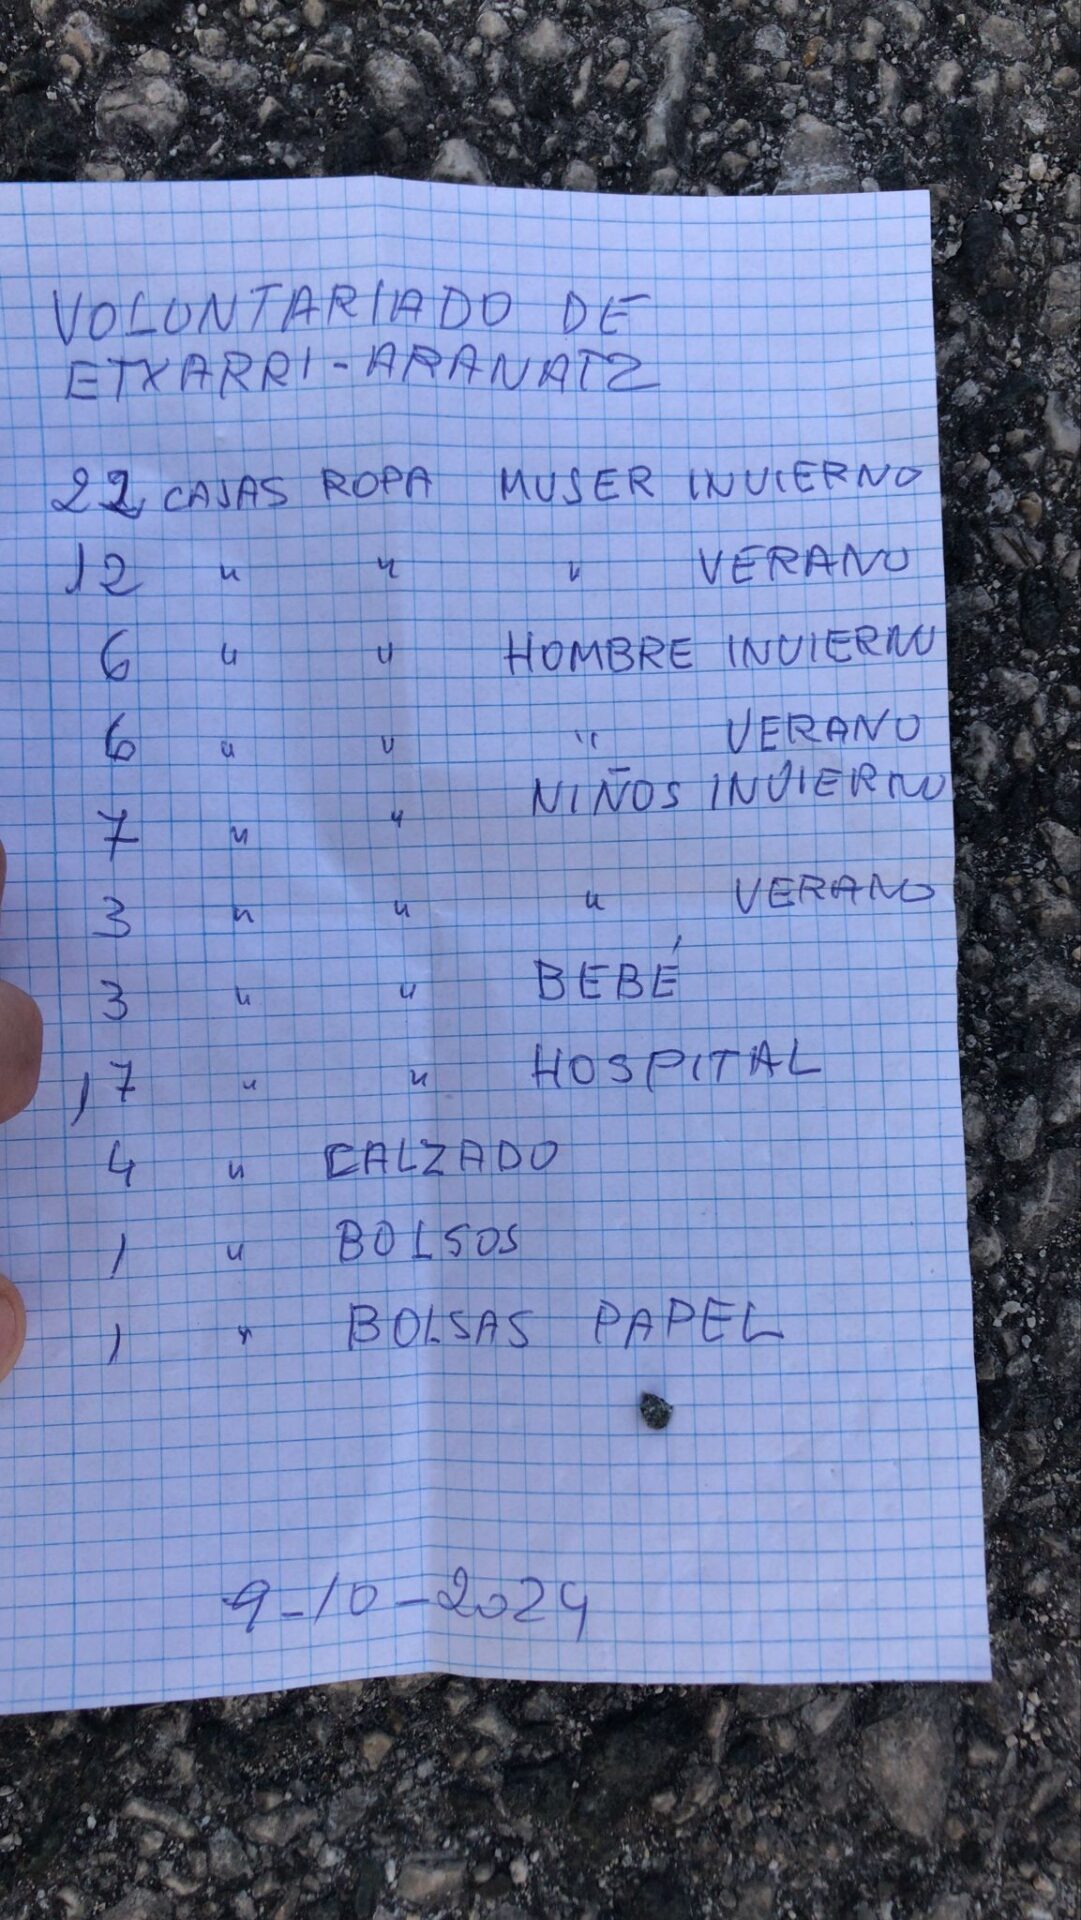 VOLUNTARIADO DE
ETXARRI-ARANATZ
22 CAJAS ROPA MUJER INVIERNO
12 " " " VERANO
6 " " HOMBRE INVIERNO
6 " " " VERANO
7 " " NIÑOS INVIERNO
3 " " " VERANO
3 " " BEBÉ
17 " " HOSPITAL
4 " CALZADO
1 " BOLSOS
1 " BOLSAS PAPEL
9-10-2024